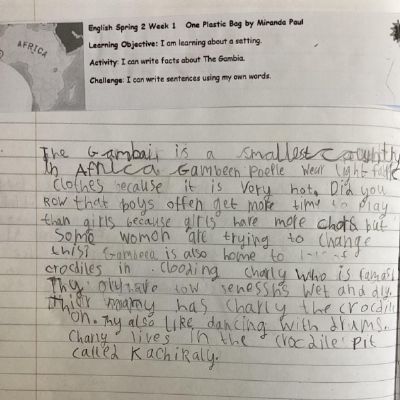 AFRICA
English Spring 2 Week 1 One Plastic Bag by Miranda Paul
Learning Objective: I am learning about a setting.
Activity: I can write facts about The Gambia.
Challenge: I can write sentences using my own words.
The Gambair is a smallest country
In Africa Gambeen poeple wear light
clothes because it is very hot. Did you
Row that boys offen get more time to play
than girls because girls have more but
some women are trying to change
this! Gambeea is also home to
crocdiles in clooding charly who is
Thy olny have tow wet and dry.
Thier has charly the crocdile
on. Thy also like dancing with drams.
Charly lives in the crocdile pit
called Kachikaly.